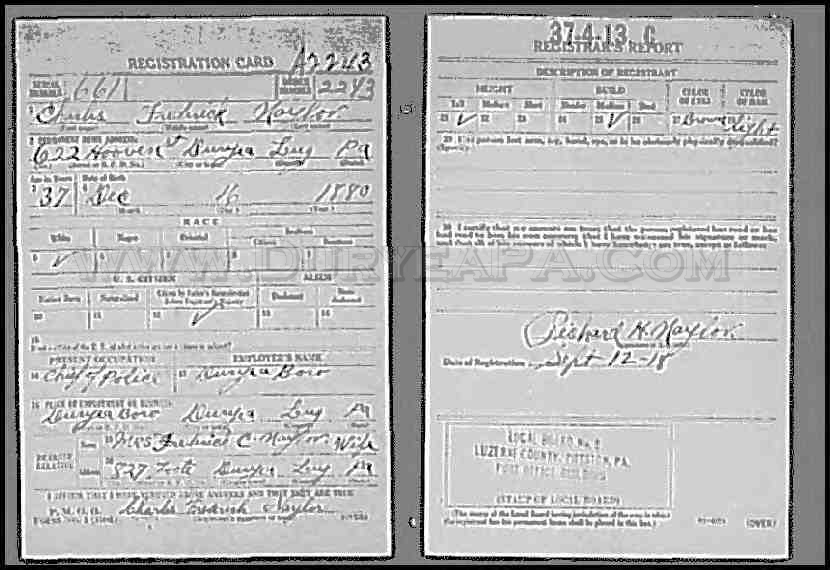 REGISTRATION CARD A2243
SERIAL NUMBER 661 ORDER NUMBER 2243
1 Charles Fredrick Naylor
(First name) (Middle name) (Last name)
2 PERMANENT HOME ADDRESS:
622 Hoover St Duryea Luz Pa
Age in Years Date of Birth
3 37 4 Dec 16 1880
(Month) (Day) (Year)
RACE
White Negro Oriental Indian
Citizen Noncitizen
5 ✓ 6 7 8 9
U. S. CITIZEN ALIEN
Native Born Naturalized Citizen by Father's Naturalization Before Registrant's Majority Declarant Non-declarant
10 11 12 ✓ 13 14
15
PRESENT OCCUPATION EMPLOYER'S NAME
16 Chief of Police 17 Duryea Boro
18 PLACE OF EMPLOYMENT OR BUSINESS
Duryea Boro Duryea Luz Pa
NEAREST RELATIVE
Name 19 Mrs Fredrick C. Naylor Wife
Address 20 527 Foote Duryea Luz Pa
I AFFIRM THAT I HAVE VERIFIED ABOVE ANSWERS AND THAT THEY ARE TRUE
P. M. G. O.
Charles Fredrick Naylor
(OVER)
37-4-13 C
REGISTRAR'S REPORT
DESCRIPTION OF REGISTRANT
HEIGHT BUILD COLOR OF EYES COLOR OF HAIR
Tall Medium Short Slender Medium Stout
21 ✓ 22 23 24 25 ✓ 26 27 Brown Light
29 Has person lost arm, leg, hand, eye, or is he obviously physically disqualified?
(Specify.)
30 I certify that my answers are true; that the person registered has read or has
had read to him his own answers; that I have witnessed his signature or mark,
and that all of his answers of which I have knowledge are true, except as follows:
Richard H. Naylor
Date of Registration Sept 12-18
LOCAL BOARD No. 4
LUZERNE COUNTY, PITTSTON, PA.
POST OFFICE BUILDING
(STAMP OF LOCAL BOARD)
(The stamp of the Local Board having jurisdiction of the area in which
the registrant has his permanent home shall be placed in this box.)
(OVER)
WWW.DURYEAPA.COM